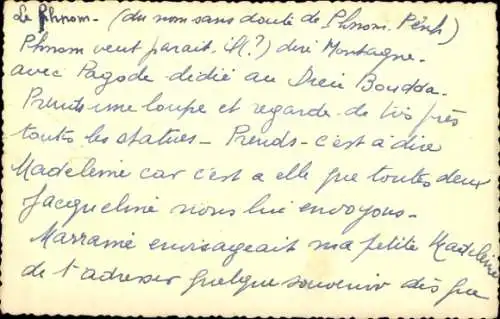 Le Phnom - (du nom sans doute de Phnom. Pênh)
Phnom veut parait. il(?) dire Montagne.
avec Pagode dédié au Dieu Boudda.
Prends une loupe et regarde. de très près
toutes les statues - Prends - c'est à dire
Madeleine car c'est a elle que toutes deux
Jacqueline nous lui envoyons.
Marraine envisageait ma petite Madeleine
de t'adresser quelque souvenir dès que